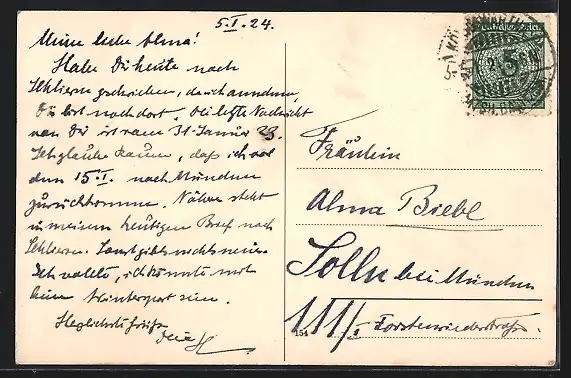 5.I.24.
Meine liebe Alma!
Habe Dir heute nach
Schliersee geschrieben, da ich annehme,
Du bist noch dort. Die letzte Nachricht
von Dir ist vom 31. 23.
Ich glaube kaum, daß ich vor
dem 15.I. nach München
zurückkomme. Näheres steht
in meinem heutigen Brief nach
Schliersee. Sonst gibts nichts neues.
Ich wollte, ich könnte mit
beim Wintersport sein.
Herzlichste Grüße
Dein H
Deutsches Reich
5
Fräulein
Alma Biebl
Solln bei München
111/I Forstenriederstraße.
154